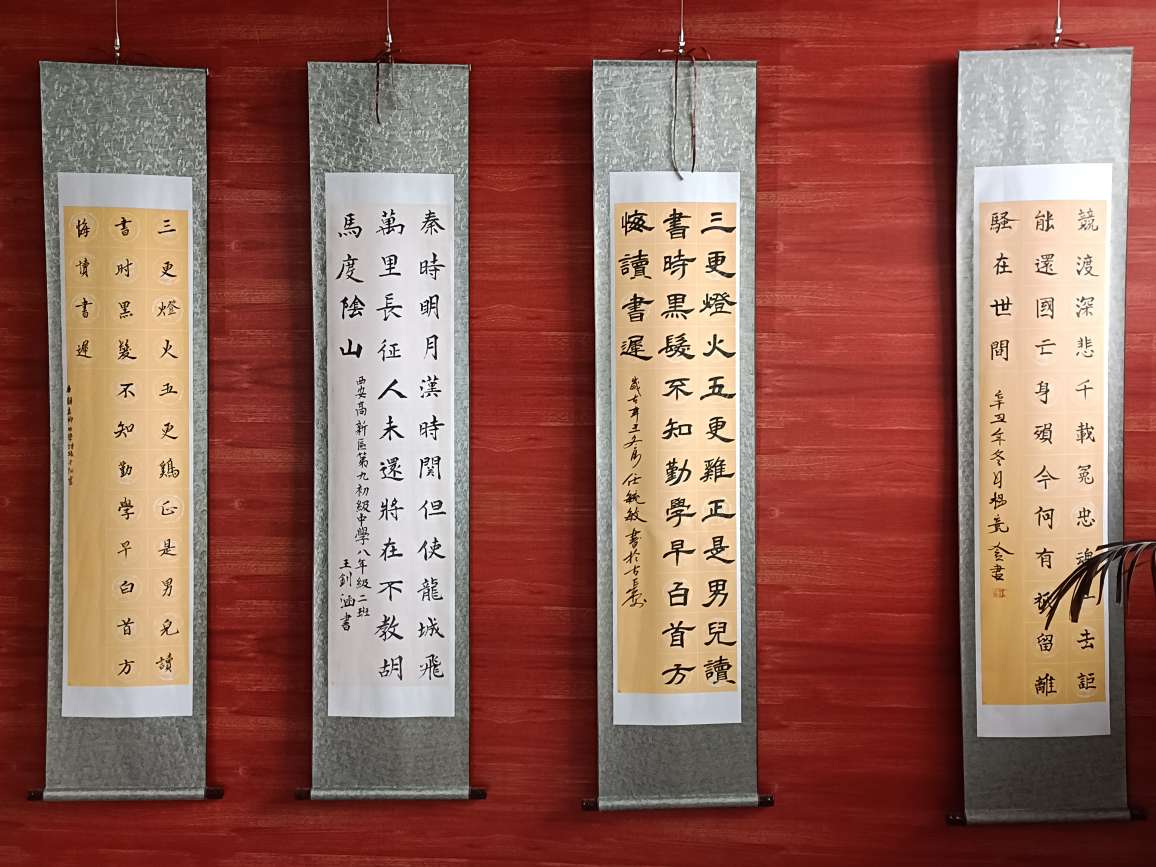 競渡深悲千載冤忠魂一去詎
能還國亡身殞今何有祇留離
騷在世間
辛丑年冬月楊亮
三更燈火五更雞正是男兒讀
書時黑髮不知勤學早白首方
悔讀書遲
任毓敏書於古長安
秦時明月漢時関但使龍城飛
萬里長征人未還將在不教胡
馬度陰山
西安高新區第九初級中學八年級二班
王釗涵書
三更燈火五更鷄正是男兒讀
書时黑髮不知勤學早白首方
悔讀書遲